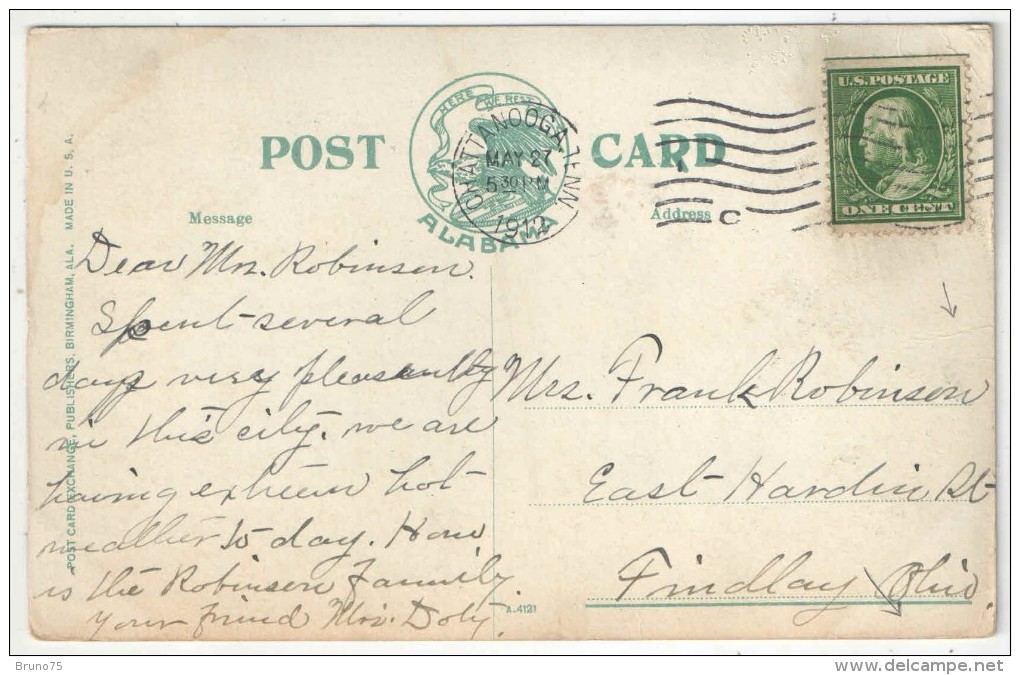 HERE WE REST
POST CARD
ALABAMA
CHATTANOOGA, TENN.
MAY 27
5 30 PM
1912
C
U.S. POSTAGE
ONE CENT
Message
Address
Dear Mrs. Robinson.
Spent several
days very pleasantly
in this city. we are
having extreem hot
weather to day. How
is the Robinson Family.
Your friend Mrs. Doty.
Mrs. Frank Robinson
East Hardin St
Findlay Ohio.
POST CARD EXCHANGE, PUBLISHERS, BIRMINGHAM, ALA. MADE IN U. S. A.
A-4121
Bruno75
delcampe.net